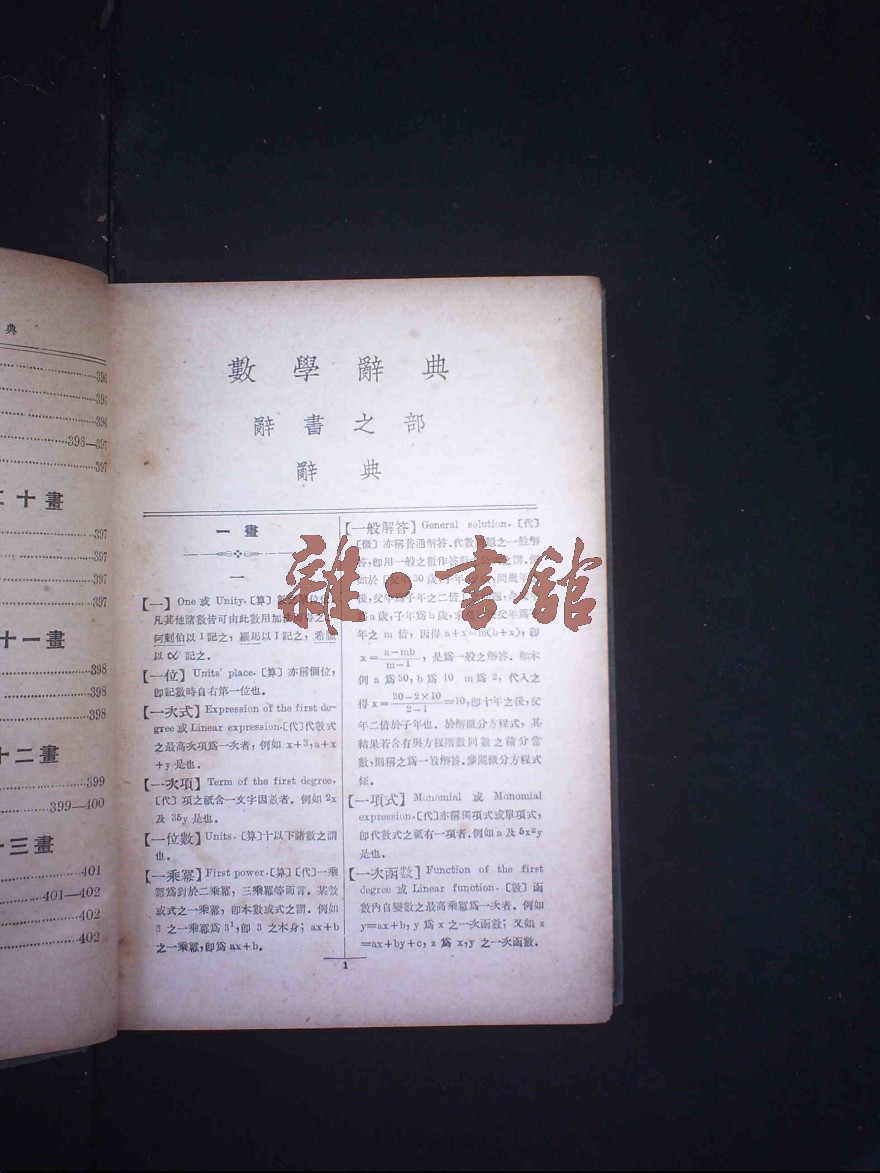 典
396
393
396
396—397
397
二十畫
397
397
397
397
十一畫
398
398
398
十二畫
399
399—400
十三畫
401
401—402
402
402
數學辭典
辭書之部
辭典
一畫
一
【一】One 或 Unity.〔算〕數之單位也,
凡其他諸數皆可由此數用加法
阿剌伯以1記之,羅馬以I記之,希臘
以∝記之.
【一位】Units' place.〔算〕亦稱個位,
卽記數時自右第一位也.
【一次式】Expression of the first de-
gree 或 Linear expression.〔代〕代數式
之最高次項爲一次者,例如 x+3,a+x
+y 是也.
【一次項】Term of the first degree.
〔代〕項之祇含一文字因數者.例如 2x
及 35y 是也.
【一位數】Units.〔算〕十以下諸數之謂
也.
【一乘冪】First power.〔算〕〔代〕一乘
冪爲對於二乘冪,三乘冪等而言.某數
或式之一乘冪,卽本數或式之謂.例如
3 之一乘冪爲 3¹,卽 3 之本身;ax+b
之一乘冪,卽爲 ax+b.
【一般解答】General solution.〔代〕
〔微〕亦稱普通解答.代數問題之一般解
答,卽用一般之數作答
如於「父年30歲,子年
後,父年爲子年之二倍
爲a歲,子年爲b歲,求
年之 m 倍,因得 a+x=m(b+x),卽
x=a-mb/m-1,是爲一般之解答.如本
例 a 爲 30,b 爲 10 m 爲 2,代入之
得 x=30-2×10/2-1=10,卽十年之後,父
年二倍於子年也.於解微分方程式,其
結果若含有與方程階數同數之積分常
數,則稱之爲一般解答.參閱微分方程式
條.
【一項式】Monomial 或 Monomial
expression.〔代〕亦稱獨項式或單項式,
卽代數式之祇有一項者.例如 a 及 5x²y
是也.
【一次函數】Function of the first
degree 或 Linear function.〔數〕函
數內自變數之最高乘冪爲一次者.例如
y=ax+b,y 爲 x 之一次函數;又如 z
=ax+by+c,z 爲 x,y 之一次函數.
1
雜·書館